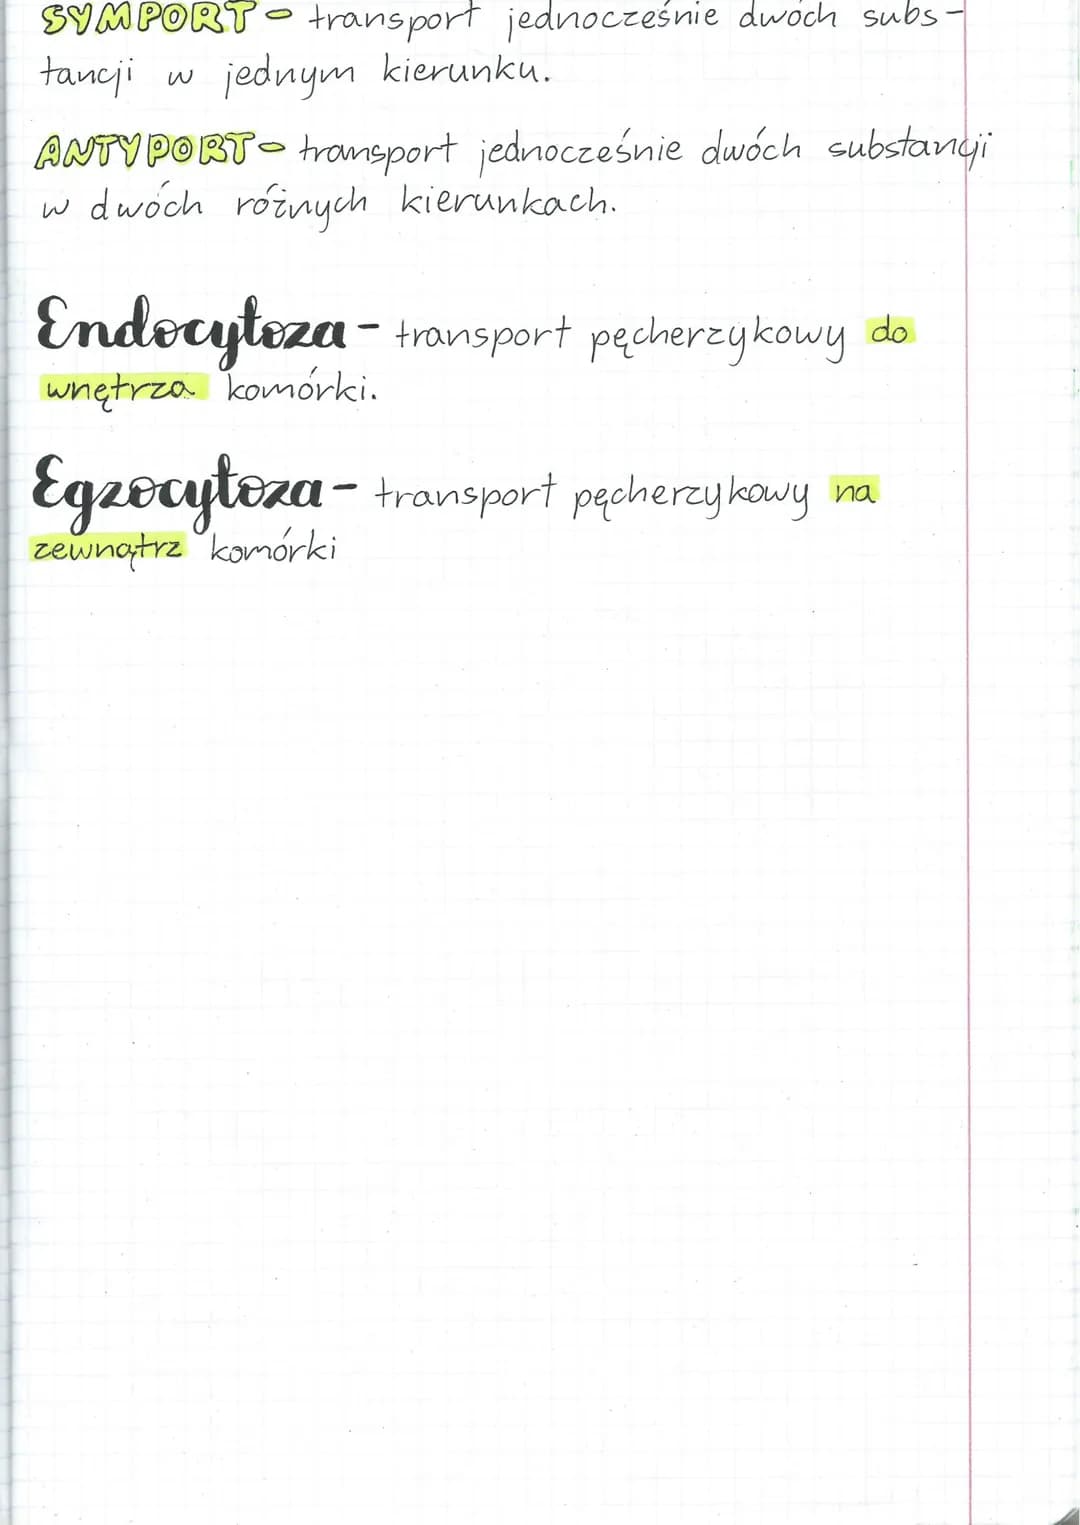 SYMPORT - transport jednocześnie dwóch subs-
tancji w jednym kierunku.
ANTYPORT - transport jednocześnie dwóch substancji
w dwóch różnych kierunkach.
Endocytoza - transport pęcherzykowy do
wnętrza komórki.
Egzocytoza - transport pęcherzykowy na
zewnątrz komórki